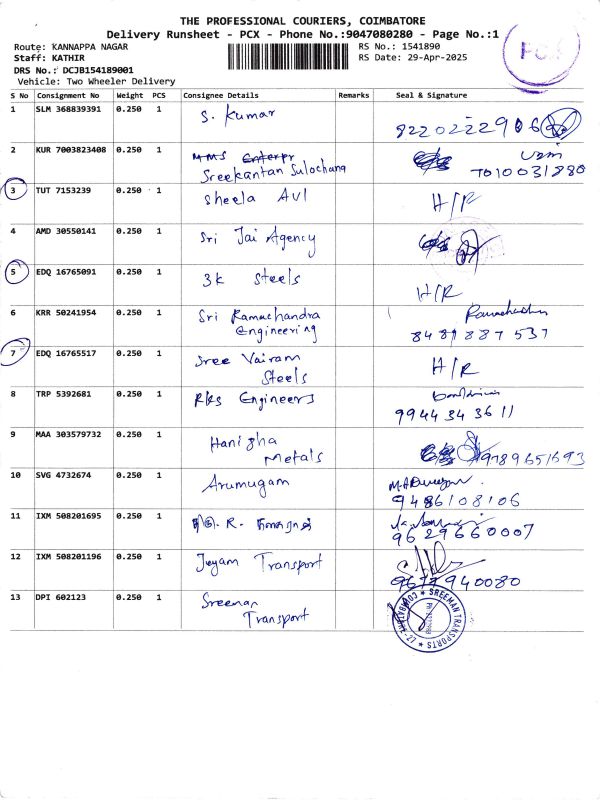 THE PROFESSIONAL COURIERS, COIMBATORE
Delivery Runsheet - PCX - Phone No.:9047080280 - Page No.:1
Route: KANNAPPA NAGAR
RS No.: 1541890
Staff: KATHIR
RS Date: 29-Apr-2025
PCX
DRS No.: DCJB154189001
Vehicle: Two Wheeler Delivery
S No Consignment No Weight PCS Consignee Details Remarks Seal & Signature
1 SLM 368839391 0.250 1 S. Kumar
8220222906
2 KUR 7003823408 0.250 1 MMS Enterpr
Sreekantan Sulochana 7010031880
3 TUT 7153239 0.250 1 Sheela AVL H/R
4 AMD 30550141 0.250 1 Sri Jai Agency
5 EDQ 16765091 0.250 1 3k Steels H/R
6 KRR 50241954 0.250 1 Sri Ramachandra
Engineering 8489887537
7 EDQ 16765517 0.250 1 Sree Vairam
Steels H/R
8 TRP 5392681 0.250 1 RKS Engineers
9944343611
9 MAA 303579732 0.250 1 Hanisha
Metals 9789651693
10 SVG 4732674 0.250 1 Arumugam
9486108106
11 IXM 508201695 0.250 1
9629660007
12 IXM 508201196 0.250 1 Jeyam Transport
940080
13 DPI 602123 0.250 1 Sreeman
Transport
SREEMAN TRANSPORTS